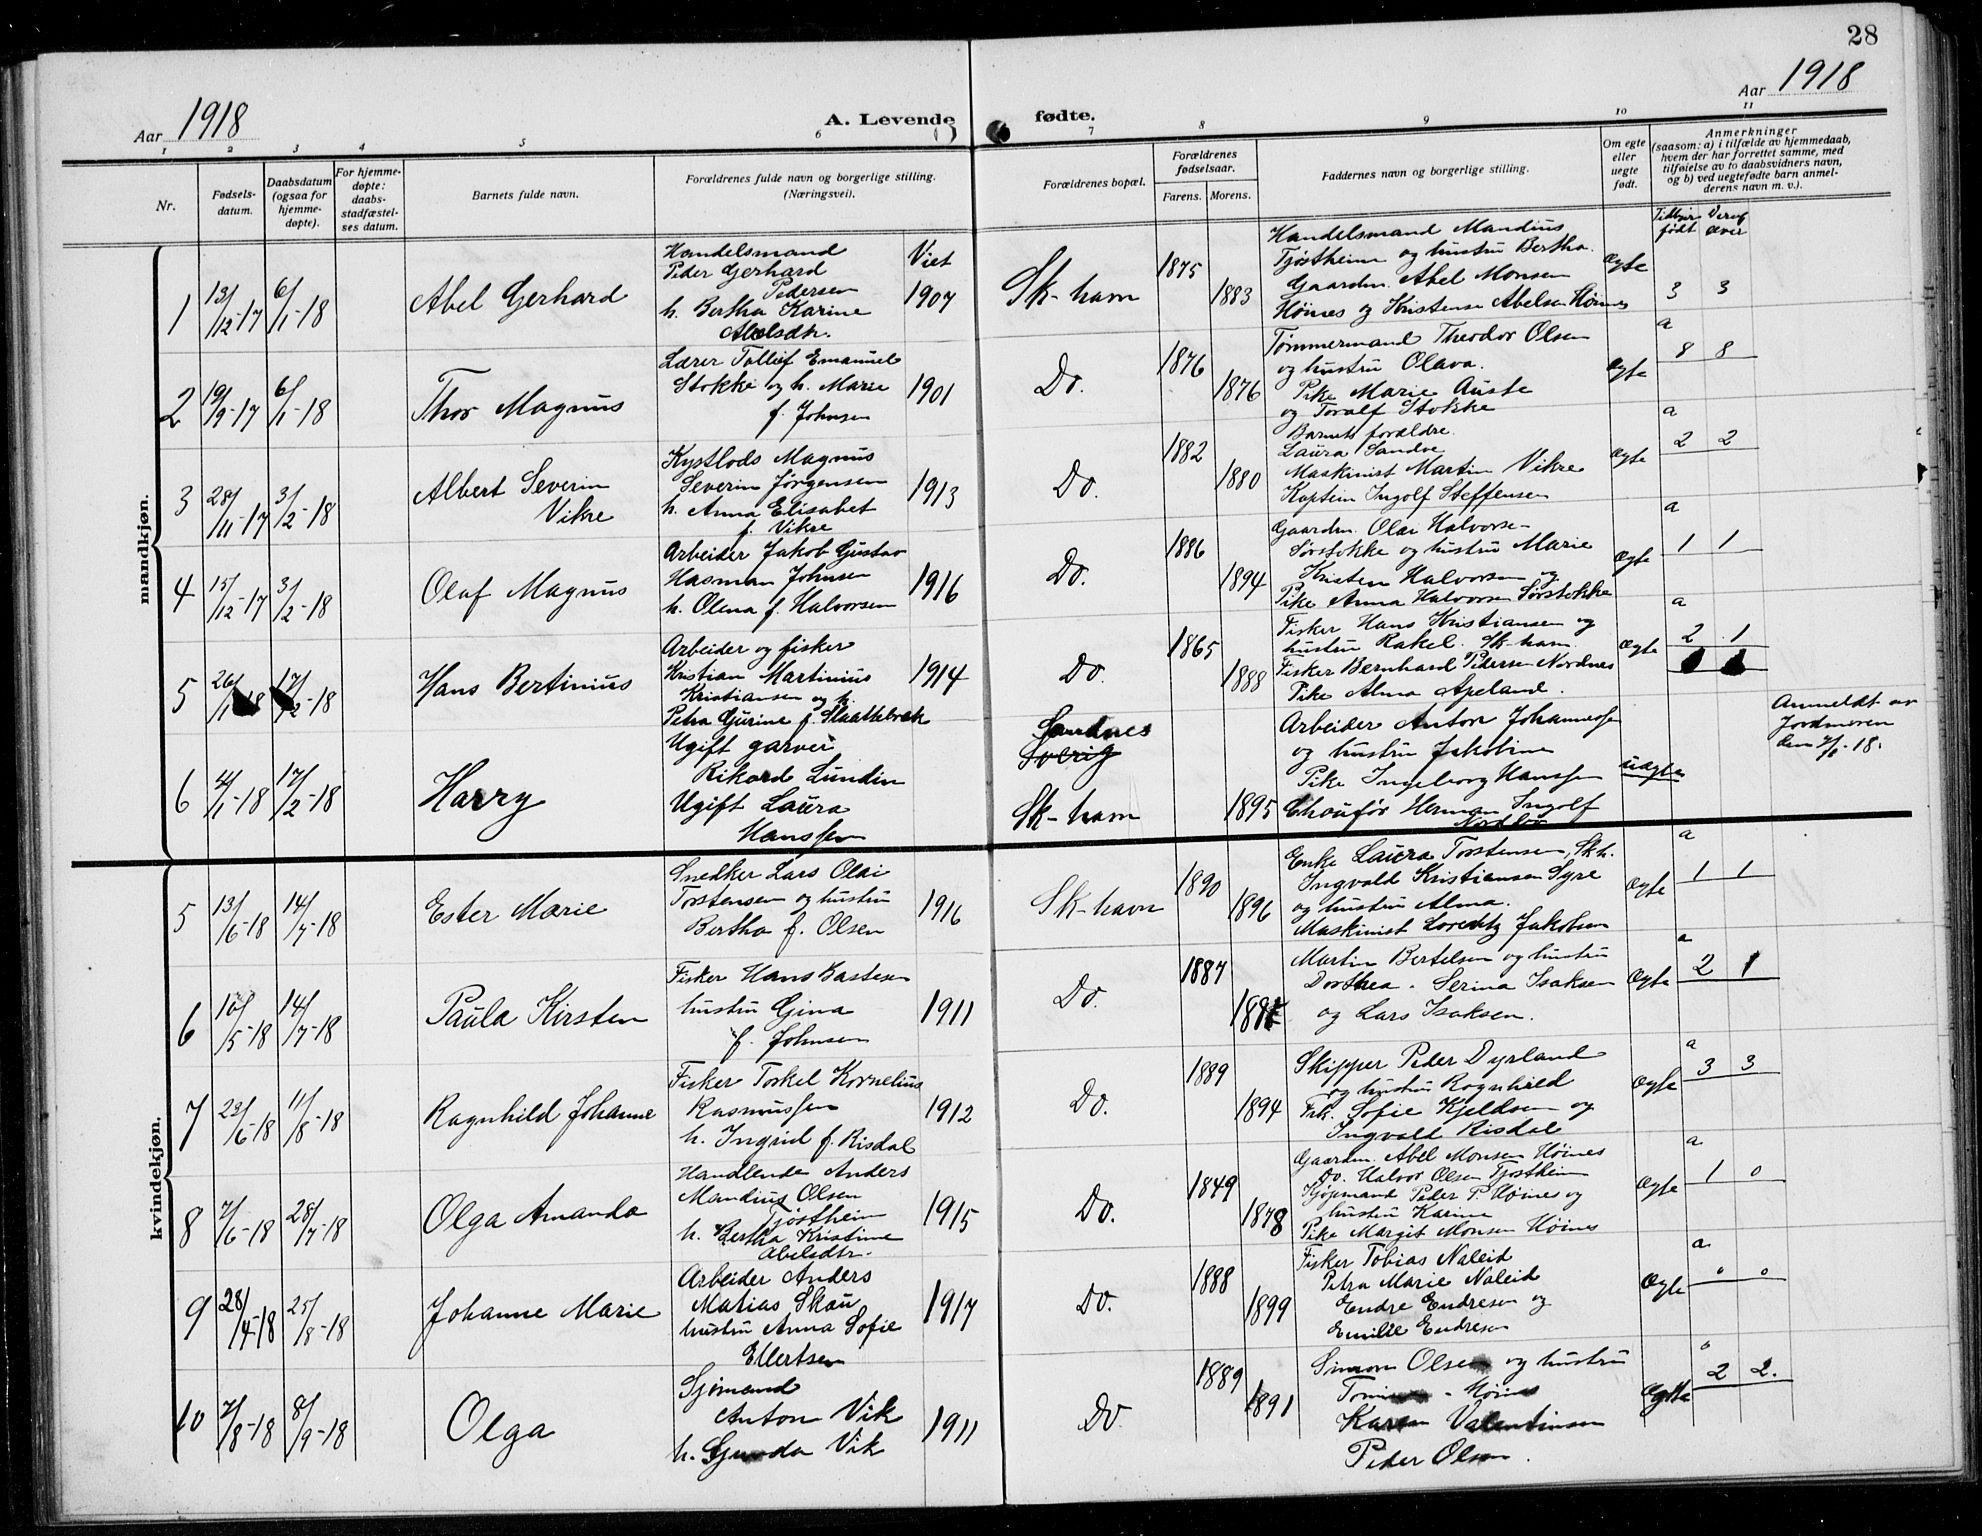 28
Aar 1918
A. Levende fødte.
Aar 1918
1 2 3 4 5 6 7 8 9 10 11
Nr.
Fødsels-
datum.
Daabsdatum
(ogsaa for
hjemme-
døpte).
For hjemme-
døpte:
daabs-
stadfæstel-
ses datum.
Barnets fulde navn.
Forældrenes fulde navn og borgerlige stilling.
(Næringsvei).
Forældrenes bopæl.
Forældrenes
fødselsaar.
Farens. Morens.
Faddernes navn og borgerlige stilling.
Om egte
eller
uegte
født.
Anmerkninger
(saasom: a) i tilfælde av hjemmedaab,
hvem der har forrettet samme, med
tilføielse av to daabsvidners navn,
og b) ved uegtefødte barn anmel-
derens navn m. v.).
født
mandkjøn.
1 13/12-17 6/1-18
Abel Gerhard
Handelsmand
Peder Gerhard
Pedersen
h. Bertha Karine
Abelsdtr.
Viet
1907
Sk-havn
1875
1883
Handelsmand Mandius
Tjøstheim og hustru Bertha.
Gaardm. Abel Monsen
Høines og Kristense Abelsen Høines
Ægte
3 3
2 19/9-17 6/1-18
Thor Magnus
Lærer Tollef Emanuel
Stokke og h. Marie
f. Johnsen
1901
Do.
1876
1876
Tømmermand Theodor Olsen
og hustru Olava.
Pike Marie Auste
og Toralf Stokke
Ægte
a
8 8
3 28/11-17 3/2-18
Albert Severin
Vikre
Kystlods Magnus
Severin Jørgensen
h. Anna Elisabet
f. Vikre
1913
Do.
1882
1880
Barnets forældre.
Laura Sandve
Maskinist Martin Vikre
Kaptein Ingolf Steffensen
Ægte
a
2 2
4 15/12-17 3/2-18
Olaf Magnus
Arbeider Jakob Gustav
Hasman Johnsen
h. Olena f. Halvorsen
1916
Do.
1886
1894
Gaardm. Olai Halvorse-
Sørstokke og hustru Marie
Kristen Halvorsen og
Pike Anna Halvorsen Sørstokke
Ægte
a
1 1
5 26/1-18 17/2-18
Hans Bertinius
Arbeider og fisker
Kristian Martinius
Kristiansen og h.
Petra Gurine f. Slaattebrek
1914
Do.
1865
1888
Fisker Hans Kristiansen og
hustru Rakel. Sk-havn
Fisker Bernhard Pedersen Nordnes
Pike Alma Apeland.
Ægte
a
2 1
6 4/1-18 17/2-18
Harry
Ugift garver
Rikard Lundin
Ugift Laura
Hanssen
Sandnes
Sverig
Sk-havn
1895
Arbeider Anton Johannessen
og hustru Jakobine
Pike Ingeborg Hanssen
Chaufør Herman Ingolf
Nordbø
uægte
Anmeldt av
Jordmoren
kvindekjøn.
5 13/6-18 14/7-18
Ester Marie
Snedker Lars Olai
Torstensen og hustru
Bertha f. Olsen
1916
Sk-havn
1890
1896
Enke Laura Torstensen, Sk.h.
Ingvald Kristiansen Syre
og hustru Alma.
Maskinist Lorentz Jakobsen
Ægte
a
1 1
6 10/5-18 14/7-18
Paula Kirsten
Fisker Hans Bastesen
hustru Gina
f. Johnsen
1911
Do.
1887
Martin Bertelsen og hustru
Dorthea. Serina Isaksen
og Lars Isaksen.
Ægte
a
2 1
7 23/6-18 11/8-18
Ragnhild Johanne
Fisker Torkel Kornelius
Rasmussen
h. Ingrid f. Risdal
1912
Do.
1889
1894
Skipper Peder Dyrland
og hustru Ragnhild
Frk. Sofie Kjeldsen og
Ingvald Risdal
Ægte
a
3 3
8 7/6-18 28/7-18
Olga Amanda
Handlende Anders
Mandius Olsen
Tjøstheim
h. Bertha Kristine
Abelsdtr.
1915
Do.
1849
1878
Gaardm. Abel Monsen Høines
Do. Halvor Olsen Tjøstheim
Kjøpmand Peder P. Høines og
hustru Karine
Pike Margit Monsen Høines
Ægte
a
1 0
9 28/4-18 25/8-18
Johanne Marie
Arbeider Anders
Matias Skau
hustru Anna Sofie
Ellertsen
1917
Do.
1888
1899
Fisker Tobias Naleid
Petra Marie Naleid
Endre Endresen og
Emilie Endresen
Ægte
a
0 0
10 7/8-18 8/9-18
Olga
Sjømand
Anton Vik
h. Gunda Vik
1911
Do
1889
1891
Simon Olsen og hustru
Høines
Karen Valentinsen
Peder Olsen.
Ægte
2 2.